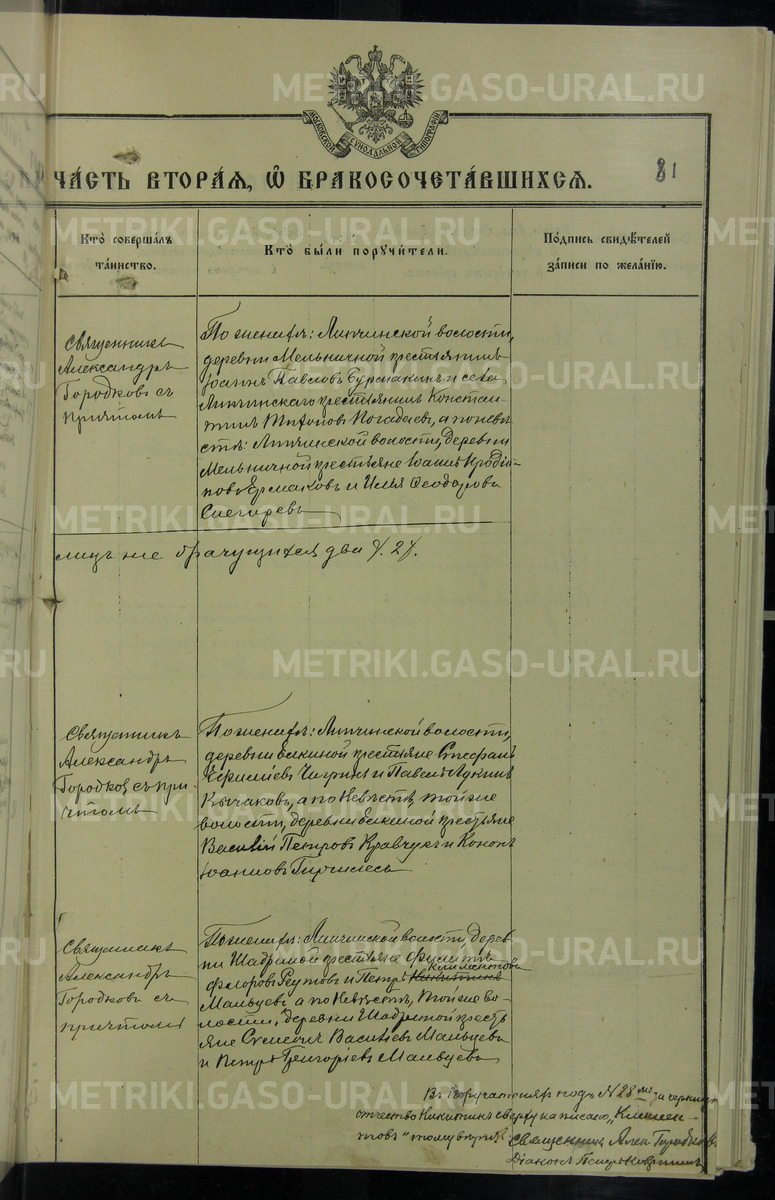 МОСКОВСКОЙ СѴНОДАЛЬНОЙ ТИПОГРАФІИ
ЧА́СТЬ ВТОРА́Я, Ѡ БРАКОСОЧЕТА́ВШИХСЯ.
81
Кто̀ соверша́лъ
та́инство.
Кто̀ бы́ли поручи́тели.
По́дпись свидѣ́телей
за́писи по жела́нїю.
Священникъ
Александръ
Городковъ съ
причтомъ
По женихѣ: Липчинской волости,
деревни Мельничной крестьянинъ
Іоаннъ Павловъ и села
Липчинскаго крестьянинъ Констан
тинъ Погадаевъ, а по невѣ
стѣ: Липчинской волости, деревни
Мельничной крестьяне Іоаннъ Иродіо
новъ Ермаковъ и Илья Ѳеодоровъ
Снегиревъ
лицъ не брачущихся два /. 2 /.
Священникъ
Александръ
Городковъ съ при
чтомъ
По женихѣ: Липчинской волости,
деревни Елкиной крестьяне Стефанъ
и Павелъ
а по невѣстѣ, той же
волости, деревни Елкиной крестьяне
Василій Петровъ Кравчукъ и Кононъ
Іоанновъ
Священникъ
Александръ
Городковъ съ
причтомъ
По женихѣ: Липчинской волости, дерев
ни Шадриной крестьяне
Реутовъ и Петръ Никитинъ Климентовъ
Мальцевъ, а по невѣстѣ, той же во
лости, деревни Шадриной кресть
яне Васильевъ Мальцевъ
и Петръ Григорьевъ Мальцевъ
В поручателяхъ подъ N 28 мъ зачеркну
отчество Никитинъ сверху написано „Климен
товъ“ тому вѣримъ: Священникъ Алек. Городковъ
Діаконъ Петръ
METRIKI.GASO-URAL.RU